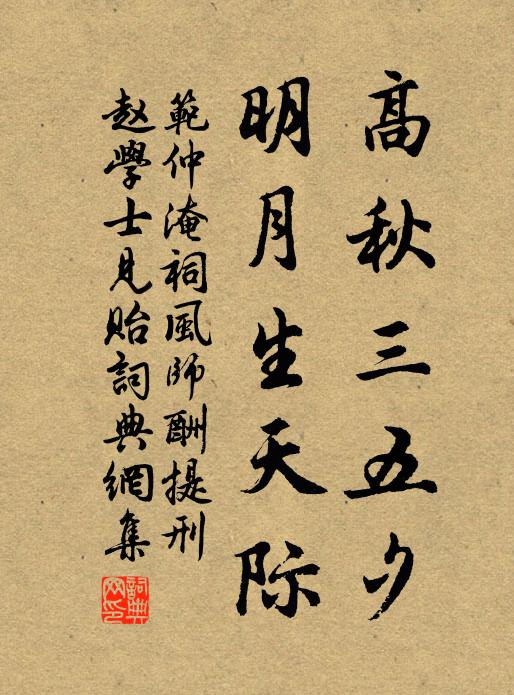 高秋三五夕
明月生天际
範仲淹祠風師酬提刑
赵學士見貽詞典網集
詞典網印